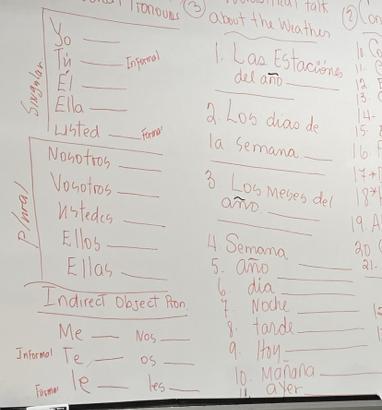 Pronouns
Singular
Yo
Tú Informal
Él
Ella
Usted Formal
Plural
Nosotros
Vosotros
Ustedes
Ellos
Ellas
Indirect Object Pron.
Me Nos
Informal Te os
le les
③ talk
about the Weather
1. Las Estaciones
del año
2. Los dias de
la semana
3 Los Meses del
año
4. Semana
5. año
6 dia
7. Noche
8. tarde
9. Hoy
10. Mañana
11. ayer
②
10
11.
12
13.
14.
15.
16.
17
18
19. A
20
21.